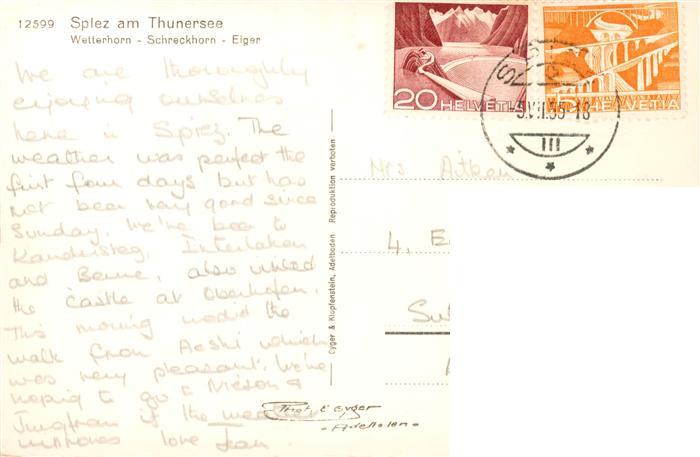 12599 Spiez am Thunersee
Wetterhorn - Schreckhorn - Eiger
We are thoroughly
enjoying ourselves
here in Spiez. The
weather was perfect the
first four days but has
not been very good since
Sunday. We've been to
Kandersteg, Interlaken
and Berne, also visited
the castle at Oberhofen.
This morning we did the
walk from Aeshi which
was very pleasant. We're
hoping to go to
Jungfrau if the weather
improves love Jean.
Cyger & Klopfenstein, Adelboden Reproduktion verboten
Phot E Gyger
- Adelboden -
20 HELVETIA
15 HELVETIA
SPIEZ
9.VII.55-18
III
Mrs Aitken
4, E
Su